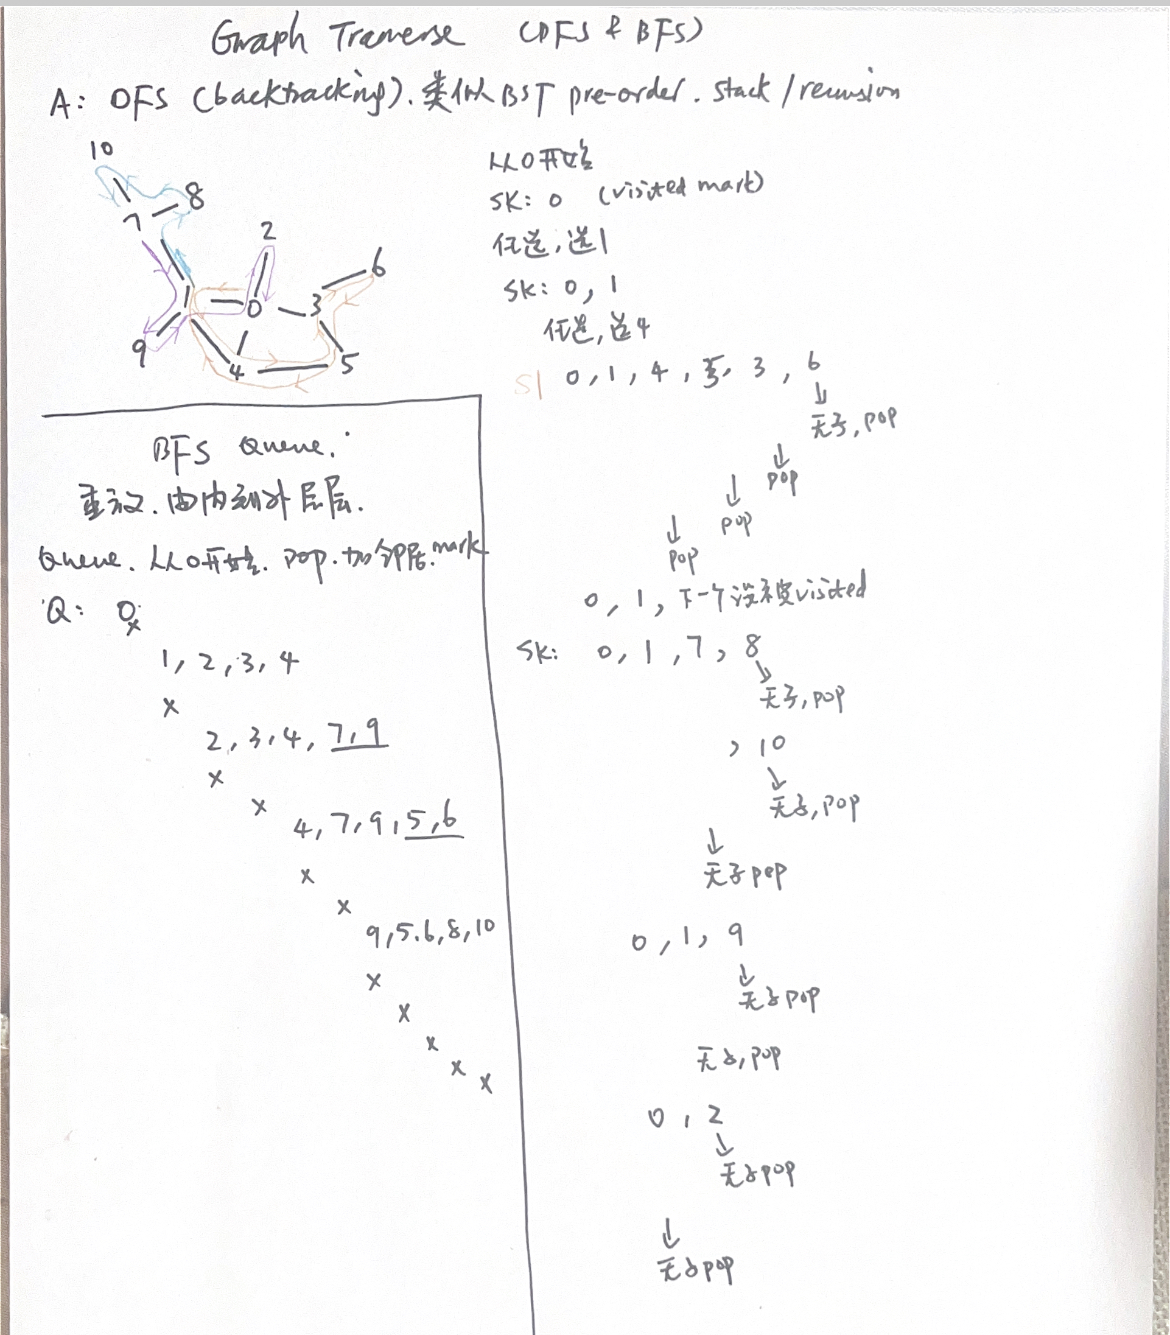 Graph Traverse (DFS & BFS)
A: DFS (backtracking). 类似 BST pre-order. stack / recursion
10
8
7
2
6
1
0
3
9
4
5
从0开始
SK: 0 (visited mark)
任选,选1
SK: 0, 1
任选,选4
S| 0, 1, 4, 5, 3, 6
↓
无子, pop
↓
pop
↓
pop
↓
pop
0, 1, 下一个没被visited
SK: 0, 1, 7, 8
↓
无子, pop
, 10
↓
无子, pop
↓
无子 pop
0, 1, 9
↓
无子 pop
无子, pop
0, 2
↓
无子 pop
↓
无子 pop
BFS Queue.
由内到外层层.
Queue. 从0开始. pop. 加邻居. mark
Q: 0
x
1, 2, 3, 4
x
2, 3, 4, 7, 9
x
x
4, 7, 9, 5, 6
x
x
9, 5. 6, 8, 10
x
x
x
x
x